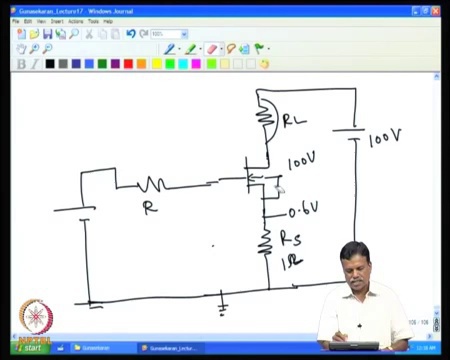 Gunasekaran_Lecture17 - Windows Journal
File Edit View Insert Actions Tools Help
100%
B I
RL
100V
100V
R
0.6V
RS
1Ω
NPTEL
start
Gunasekaran
Gunasekaran_Lectu...